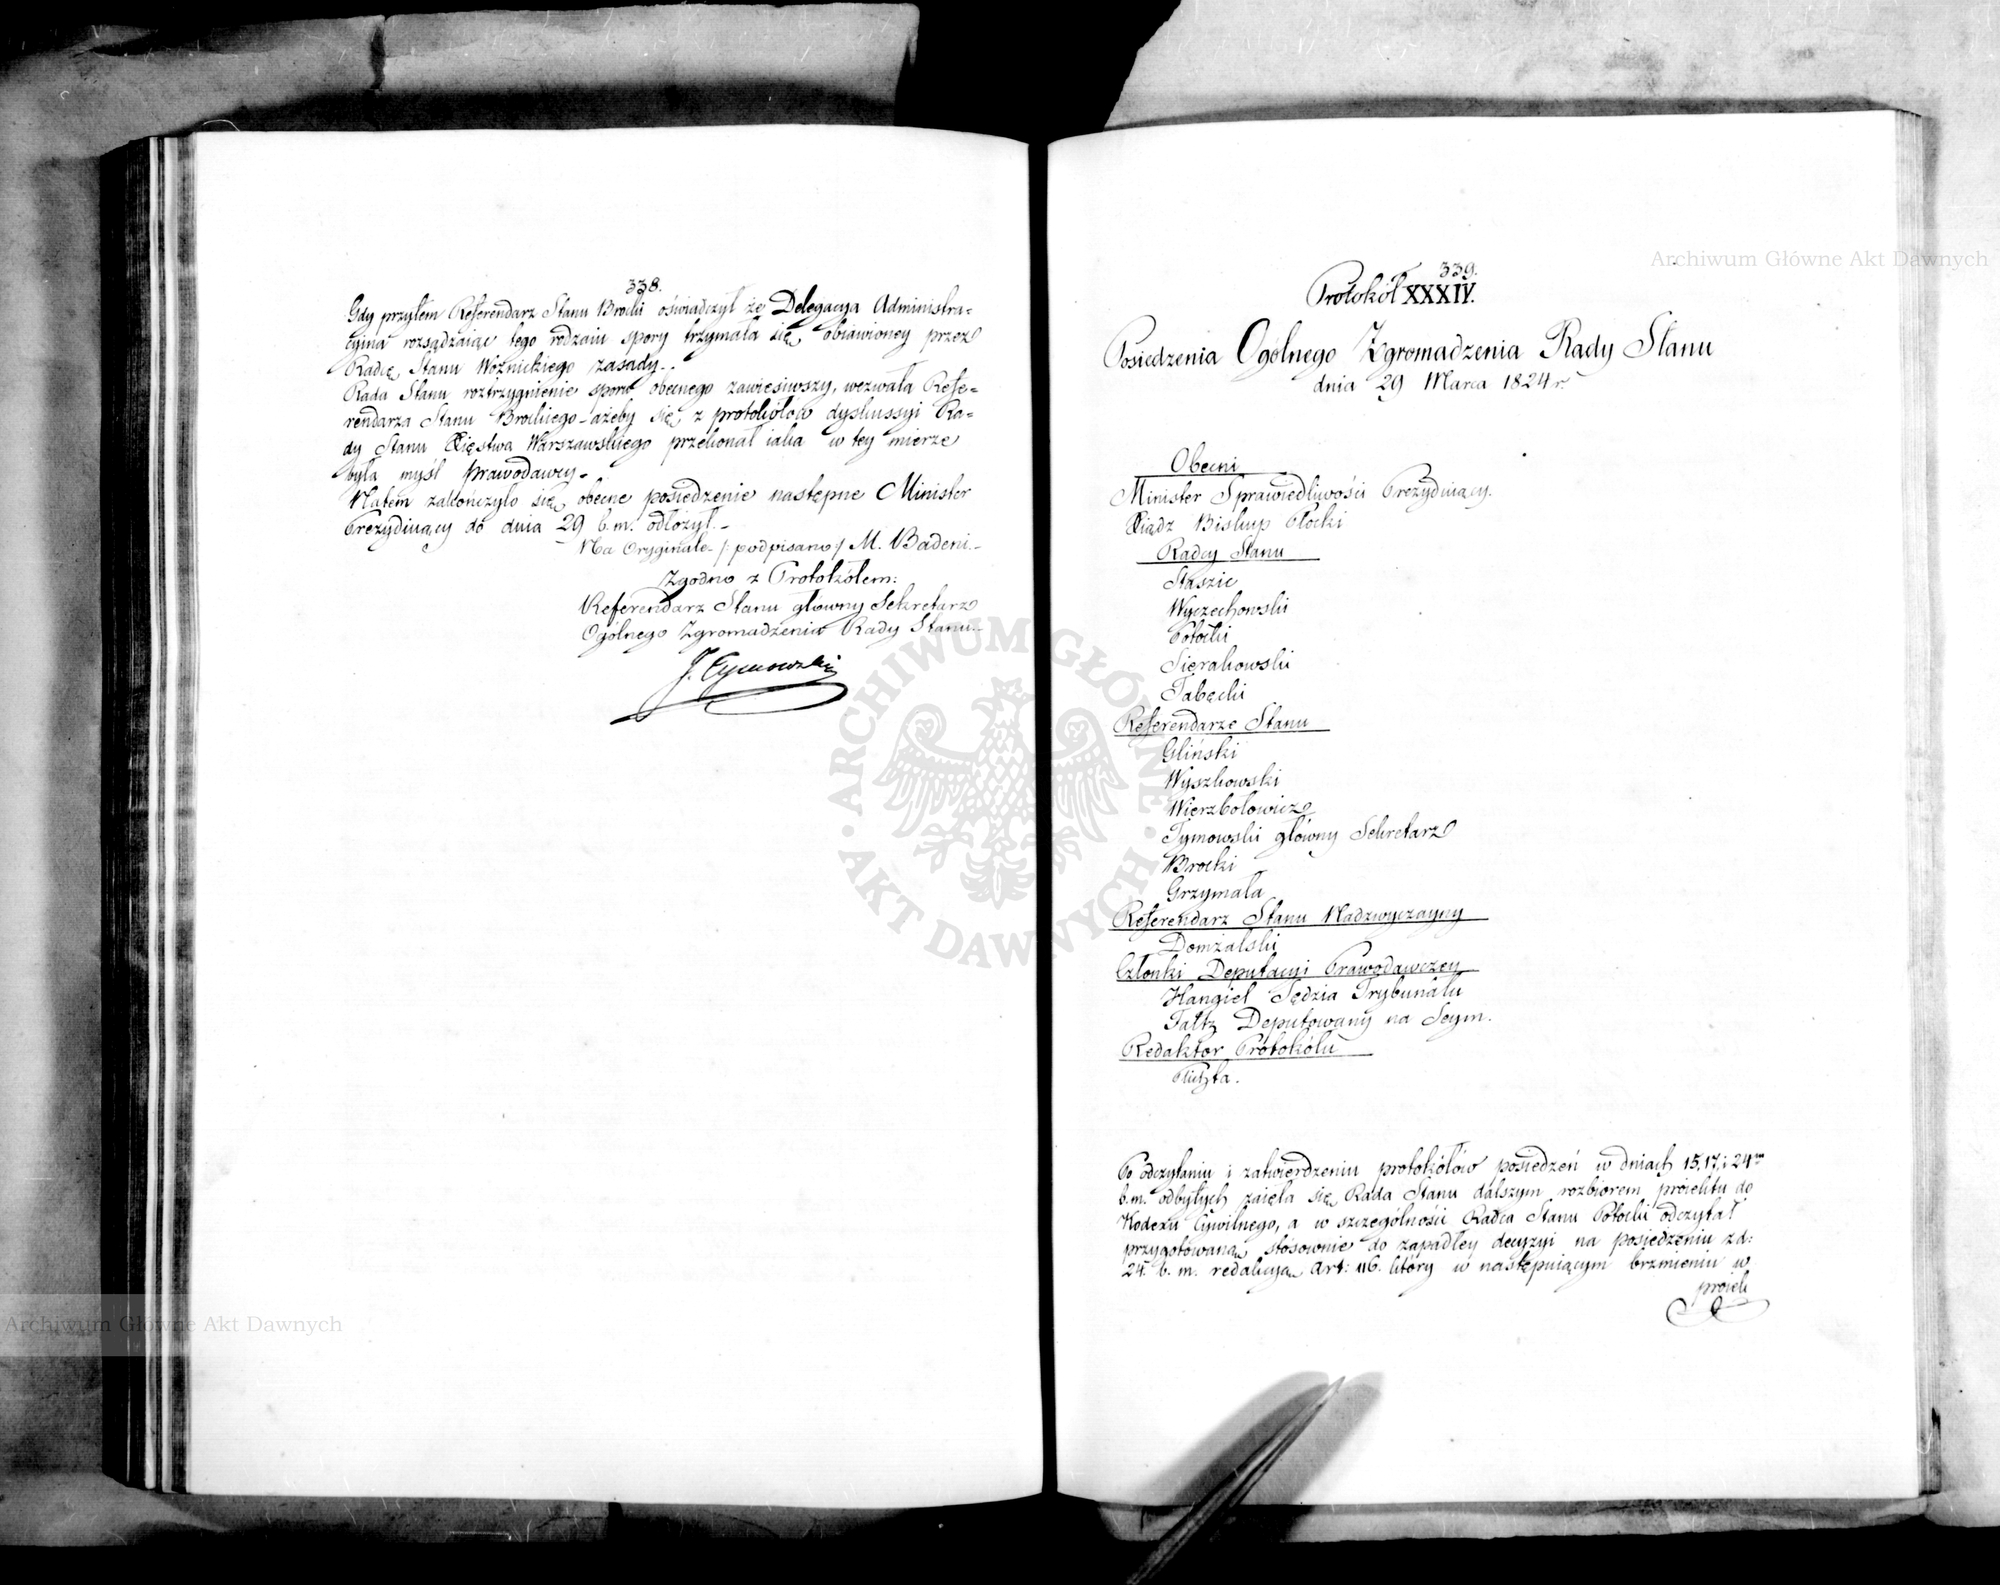 338.
Gdy przytem Referendarz Stanu Brocki oświadczył że Delegacya Administra-
cyina rozsądzaiąc tego rodzaiu spory trzymała się obiawioney przez
Radcę Stanu Woźnickiego zasady.
Rada Stanu roztrzygnienie sporu obecnego zawiesiwszy, wezwała Refe-
rendarza Stanu Brockiego ażeby się z protokółów dyskussyi Ra-
dy Stanu Xięstwa Warszawskiego przekonał iaka w tey mierze
była myśl Prawodawcy.
Natem zakończyło się obecne posiedzenie następne Minister
Prezyduiący do dnia 29 b.m. odłożył.
Na Oryginale /: podpisano / M. Badeni.
Zgodno z Protokółem:
Referendarz Stanu główny Sekretarz
Ogólnego Zgromadzenia Rady Stanu.
J. Tymowski
339.
Protokół XXXIV.
Posiedzenia Ogólnego Zgromadzenia Rady Stanu
dnia 29 Marca 1824 r.
Obecni
Minister Sprawiedliwości Prezyduiący.
Xiądz Biskup Płocki
Radcy Stanu
Staszic
Wyczechowski
Potocki
Sierakowski
Tabęcki
Referendarze Stanu
Gliński
Wyszkowski
Wierzbołowicz
Tymowski główny Sekretarz
Brocki
Grzymała
Referendarz Stanu Nadzwyczayny
Domżalski
Członki Deputacyi Prawodawczey
Hangiel Sędzia Trybunału
Faltz Deputowany na Seym.
Redaktor Protokółu
Pluszta.
Po odczytaniu i zatwierdzeniu protokółów posiedzeń w dniach 15, 17, i 24
b.m. odbytych zaięła się Rada Stanu dalszym rozbiorem proiektu do
Kodexu Cywilnego, a w szczególności Radca Stanu Potocki odczytał
przygotowaną stósownie do zapadłey decyzyi na posiedzeniu z d:
24. b. m. redakcyą Art: 116. który w następuiącym brzmieniu w
proiek
Archiwum Główne Akt Dawnych
Archiwum Główne Akt Dawnych
ARCHIWUM GŁÓWNE AKT DAWNYCH